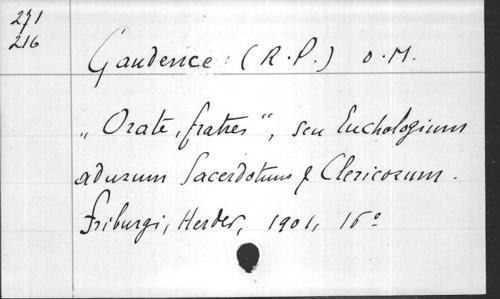 271
216
Gaudence (R.P.) O.M.
„Orate, fratres", seu Euchologium
ad usum Sacerdotum & Clericorum.
Friburgi, Herder, 1901, 16°